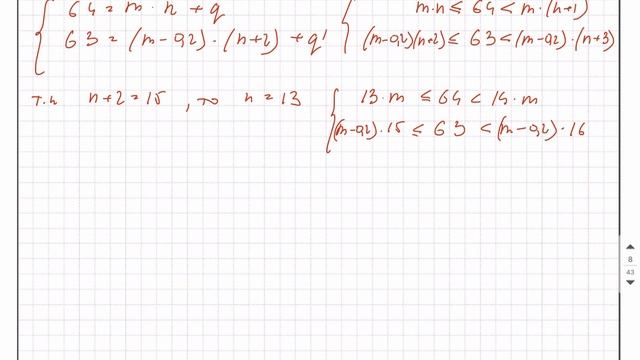 64 = m · n + q
m·n ≤ 64 < m·(n+1)
63 = (m-0,2)·(n+2) + q'
(m-0,2)(n+2) ≤ 63 < (m-0,2)·(n+3)
т.к n+2=15 , то n=13
13·m ≤ 64 < 14·m
(m-0,2)·15 ≤ 63 < (m-0,2)·16
8
43